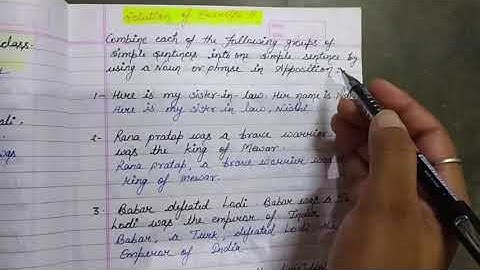 Solution of Exercise
class.
Combine each of the following groups of
simple sentences into one simple sentence by
using a Noun or phrase in Apposition :-
1- Here is my sister-in law. Her name is
Here is my sister in law, Nidhi
ali.
2- Rana pratap was a brave warrior.
was the king of Mewar.
was
Rana pratap, a brave warrior was
king of Mewar.
3. Babar defeated Lodi Babar was a
Lodi was the emperor of India
Babar, a Turk, defeated Lodi
Emperor of India